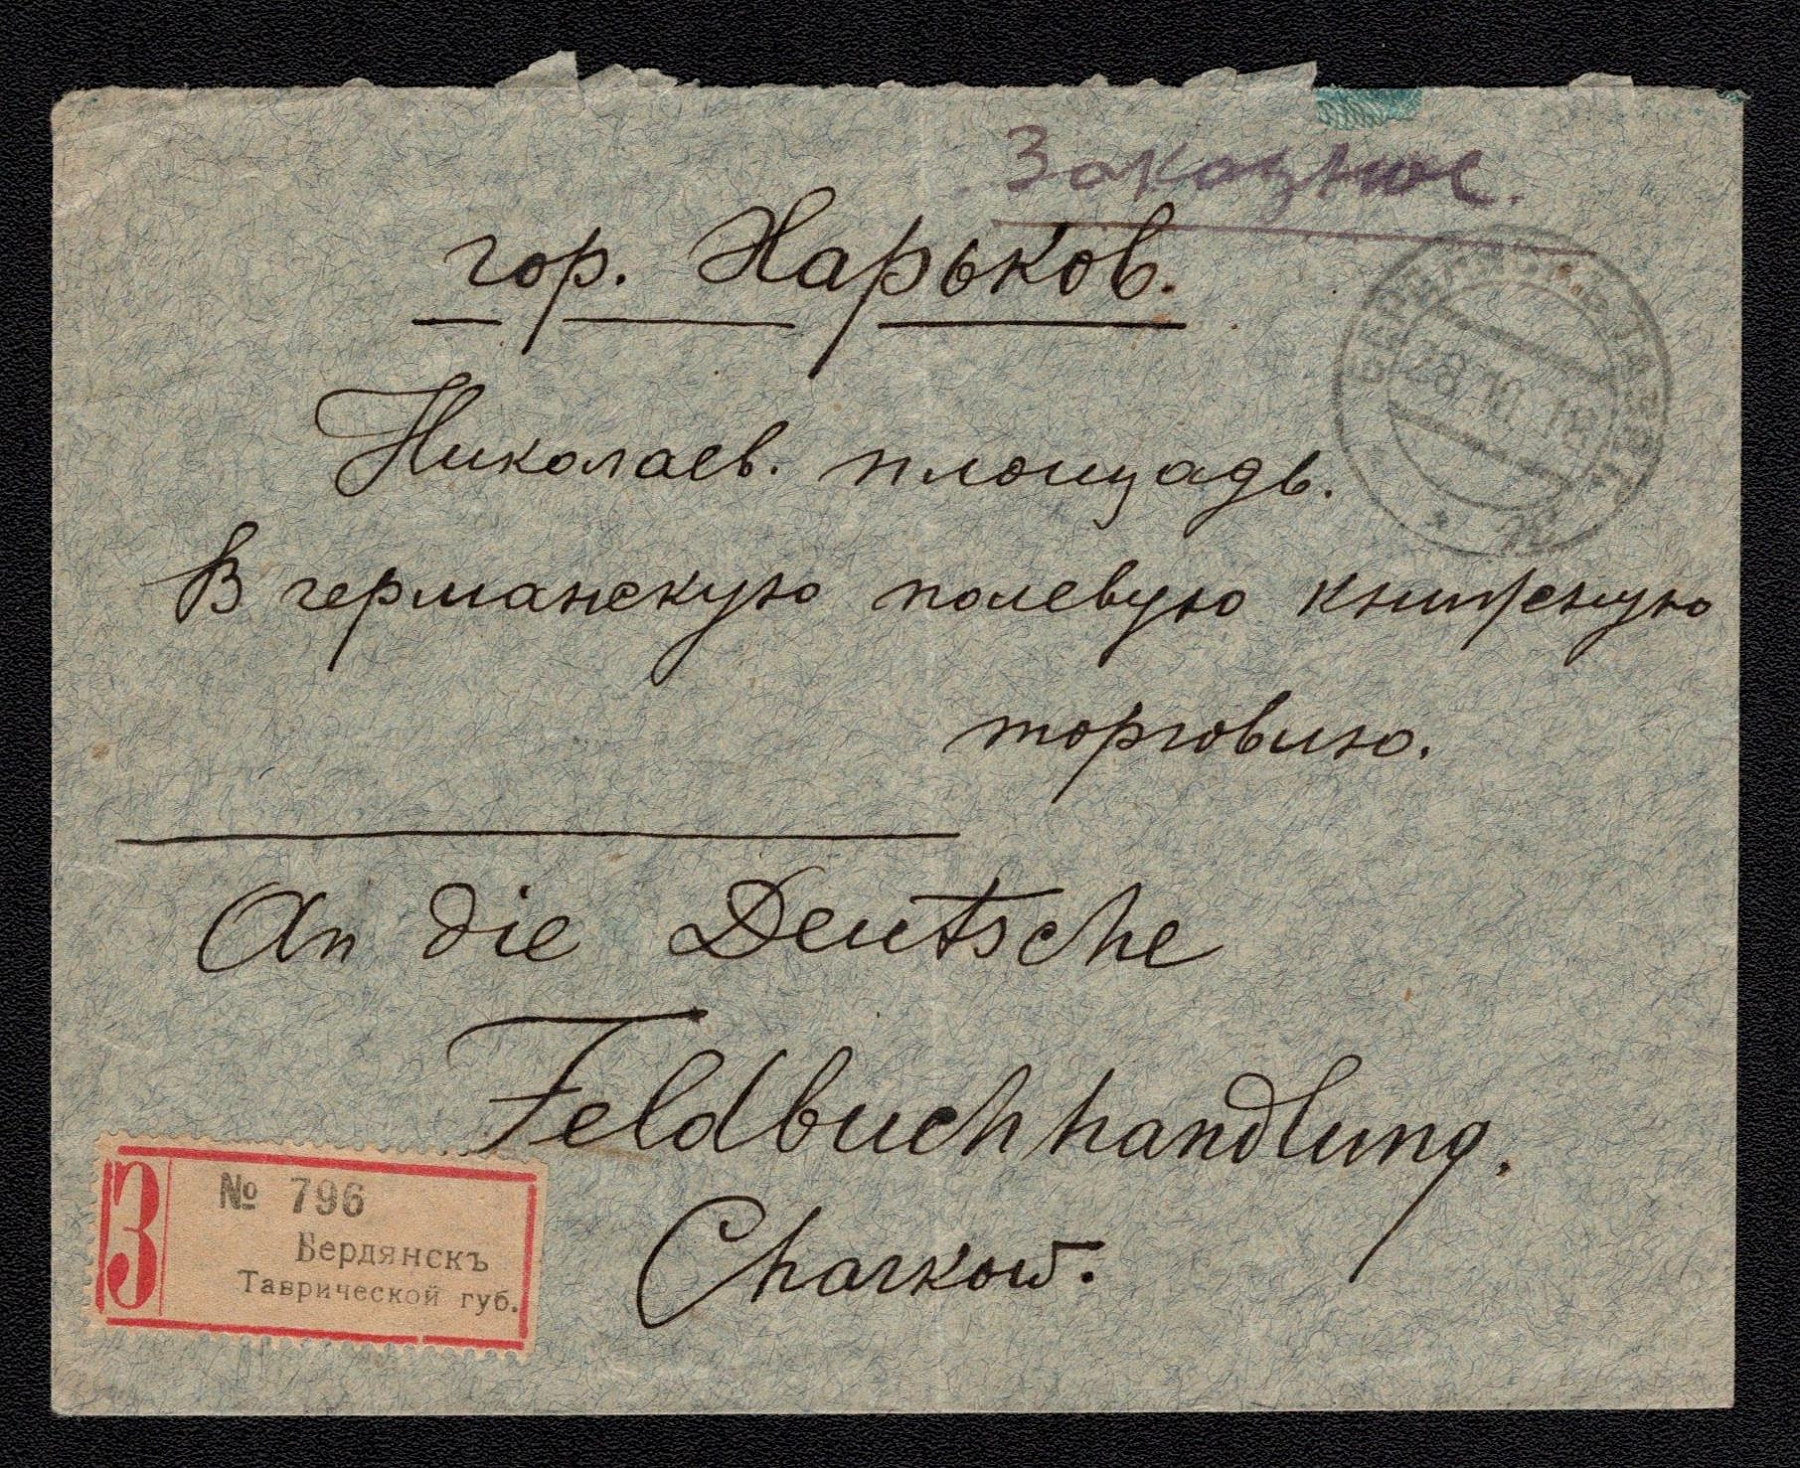 Заказное.
гор. Харьков.
БЕРДЯНСКЪ ТАВРИЧ.
28 10 18
Николаев. площадь.
В германскую полевую книжную
торговлю.
An die Deutsche
Feldbuchhandlung.
Charkow.
З
№ 796
Бердянскъ
Таврической губ.